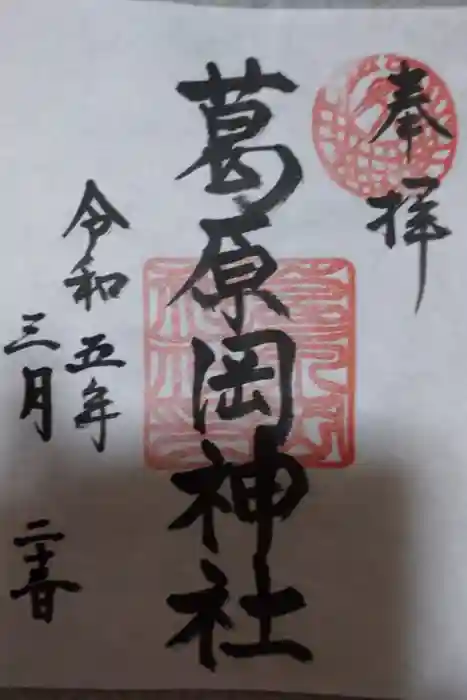 奉拝
葛原岡神社
令和五年
三月二十春日